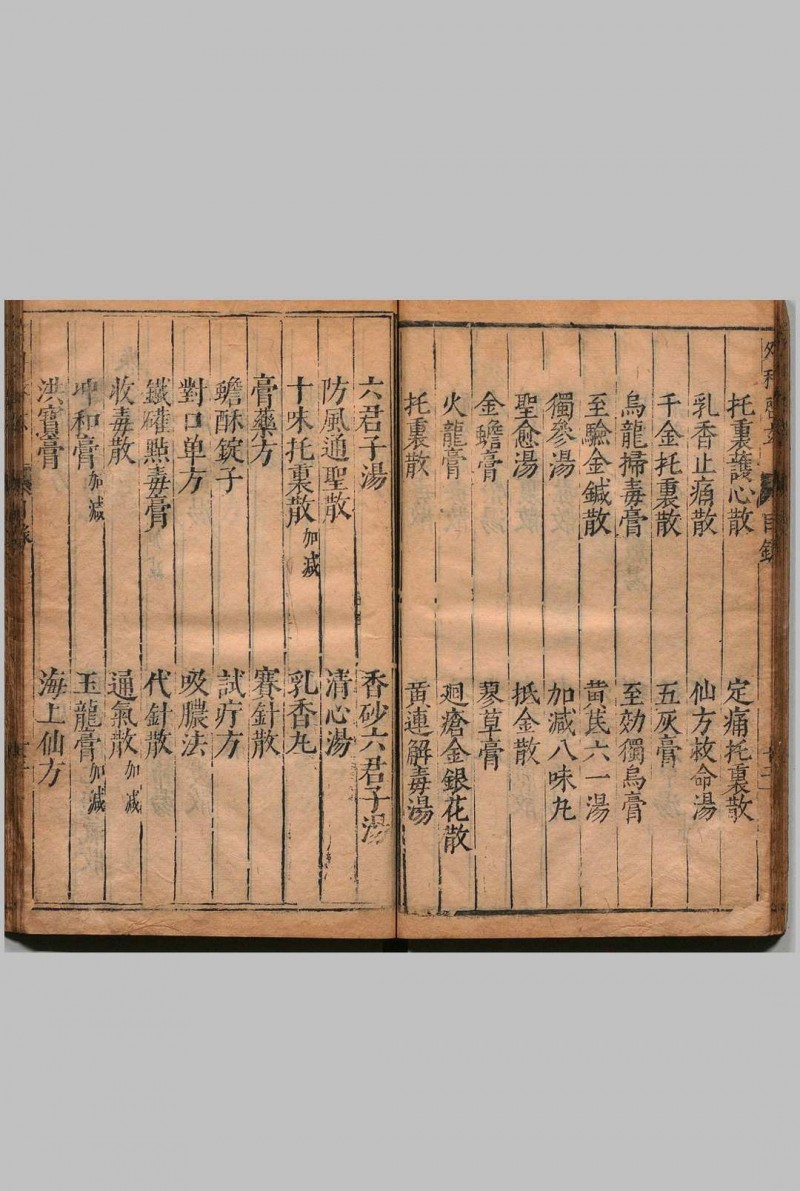 外科啓玄 目錄
托裏護心散 定痛托裏散
乳香止痛散 仙方救命湯
千金托裏散 五灰膏
烏龍掃毒膏 至効獨烏膏
至驗金鍼散 黄芪六一湯
獨參湯 加减八味丸
聖愈湯 抵金散
金蟾膏 蓼草膏
火龍膏 廻瘡金銀花散
托裏散 黄連解毒湯
六君子湯 香砂六君子湯
防風通聖散 清心湯
十味托裏散加减 乳香丸
膏藥方 賽針散
蟾酥錠子 試疔方
對口单方 吸膿法
鐵礶㸃毒膏 代針散
收毒散 通氣散加减
冲和膏加减 玉龍膏加减
洪寶膏 海上仙方